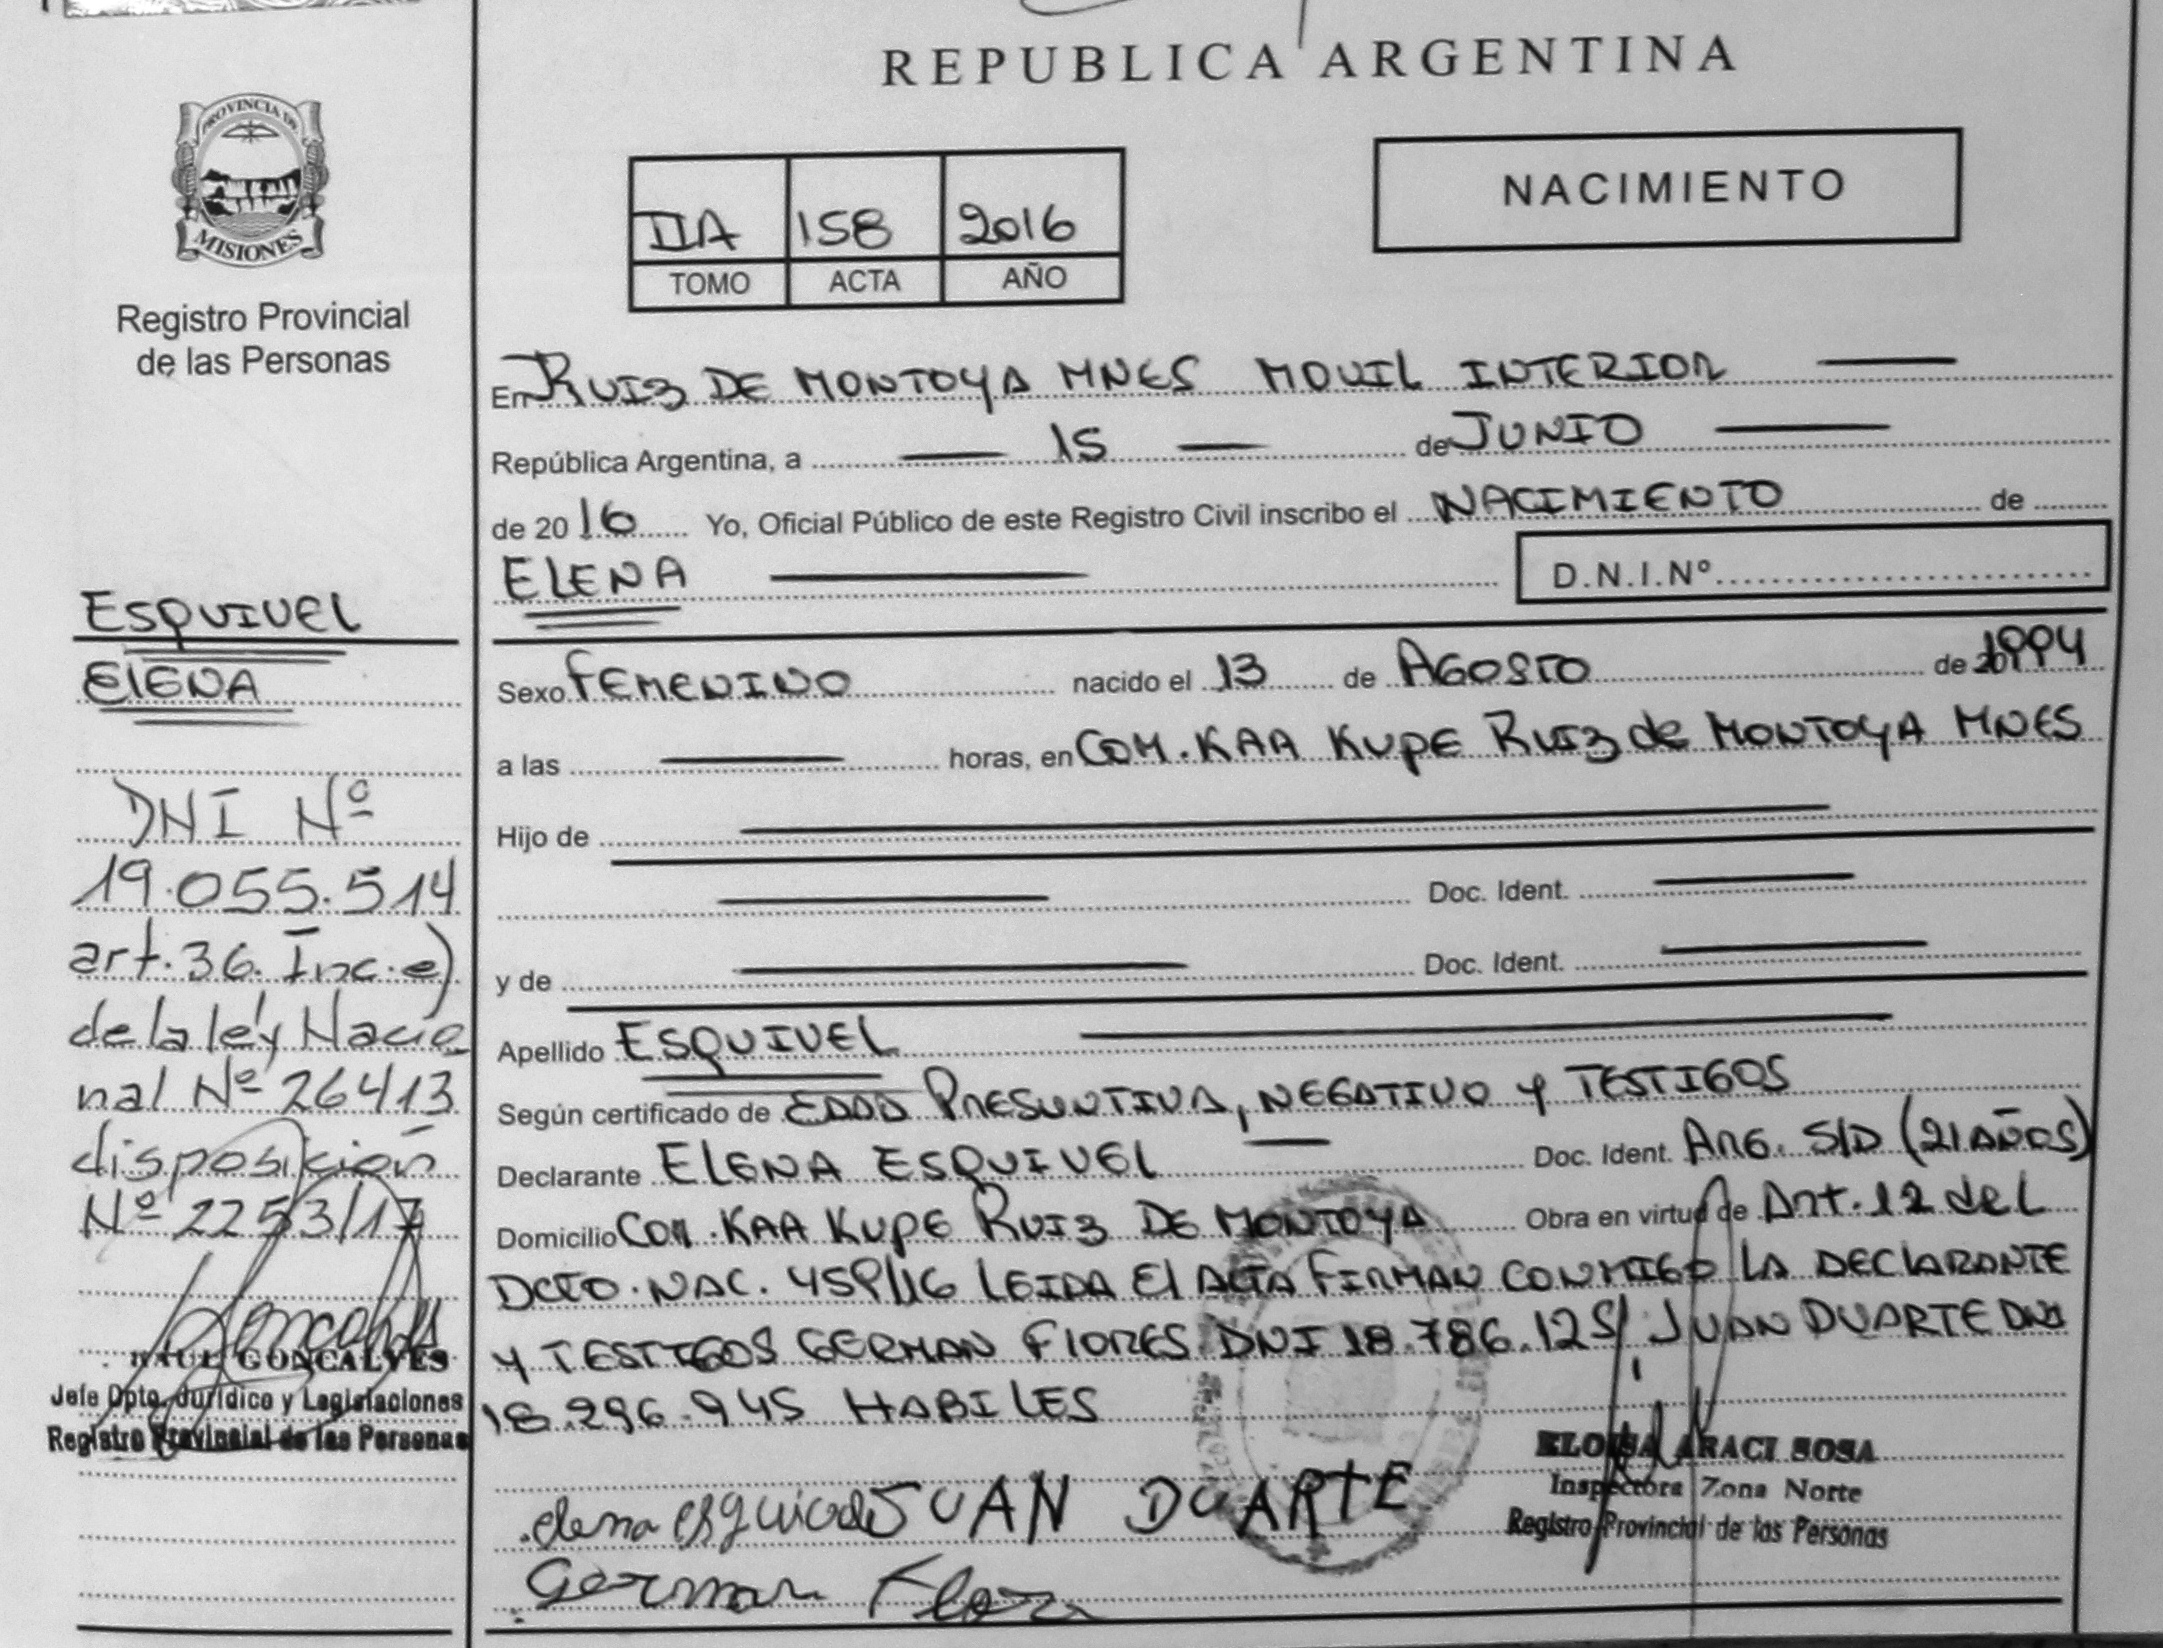 REPUBLICA ARGENTINA
PROVINCIA DE
MISIONES
Registro Provincial
de las Personas
NACIMIENTO
IIA 158 2016
TOMO ACTA AÑO
En RUIZ DE MONTOYA MNES MOVIL INTERIOR
República Argentina, a 15 de JUNIO
de 2016 Yo, Oficial Público de este Registro Civil inscribo el NACIMIENTO de
ELENA D.N.I.Nº
Sexo FEMENINO nacido el 13 de AGOSTO de 1994
a las horas, en COM. KAA KUPE RUIZ de MONTOYA MNES
Hijo de
Doc. Ident.
y de Doc. Ident.
Apellido ESQUIVEL
Según certificado de EDAD PRESUNTIVA, NEGATIVO Y TESTIGOS
Declarante ELENA ESQUIVEL Doc. Ident. ARG. S/D (21 AÑOS)
Domicilio COM. KAA KUPE RUIZ DE MONTOYA Obra en virtud de ART. 12 del
DCTO. NAC. 459/16 LEIDA El ACTA FIRMAN CONMIGO LA DECLARANTE
Y TESTIGOS GERMAN FLORES DNI 18.786.125/ JUAN DUARTE DNI
18.296.945 HABILES
elena JUAN DUARTE
German
ELOISA ARACI SOSA
Inspectora Zona Norte
Registro Provincial de las Personas
ESQUIVEL
ELENA
DNI Nº
19.055.514
art. 36. Inc. e)
de la ley Nacio
nal Nº 26413
disposición
Nº 2253/17
RAUL GONCALVES
Jefe Dpto. Jurídico y Legislaciones
Registro Provincial de las Personas